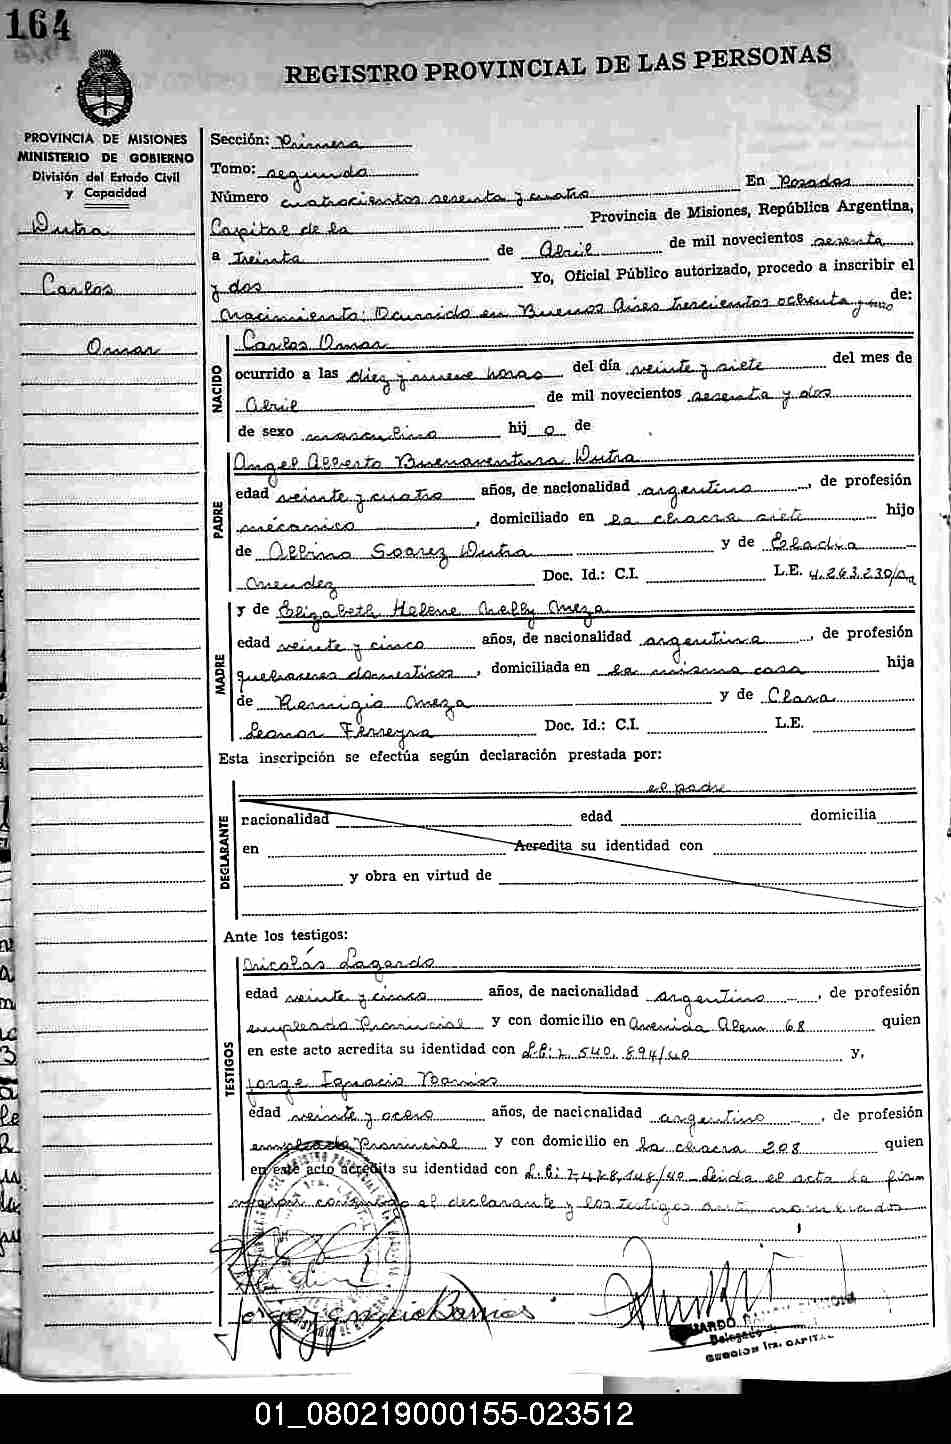 164
REGISTRO PROVINCIAL DE LAS PERSONAS
PROVINCIA DE MISIONES
MINISTERIO DE GOBIERNO
División del Estado Civil
y Capacidad
Dutra
Carlos
Omar
Sección: Primera
Tomo: segundo
Número cuatrocientos sesenta y cuatro En Posadas
Capital de la Provincia de Misiones, República Argentina,
a Treinta de Abril de mil novecientos sesenta
y dos Yo, Oficial Público autorizado, procedo a inscribir el
Nacimiento: Ocurrido en Buenos Aires trescientos ochenta y uno de:
NACIDO
Carlos Omar
ocurrido a las diez y nueve horas del día veinte y siete del mes de
Abril de mil novecientos sesenta y dos
de sexo masculino hij o de
PADRE
Angel Alberto Buenaventura Dutra
edad veinte y cuatro años, de nacionalidad argentino, de profesión
mecánico, domiciliado en la chacra siete hijo
de Albino Soarez Dutra y de Eladia
Mendez Doc. Id.: C.I. L.E. 4.263.230/
MADRE
y de Elizabeth Helene Nelly Meza
edad veinte y cinco años, de nacionalidad argentina, de profesión
quehaceres domesticos, domiciliada en la misma casa hija
de Remigio Meza y de Clara
Leonor Ferreyra Doc. Id.: C.I. L.E.
Esta inscripción se efectúa según declaración prestada por:
DECLARANTE
el padre
nacionalidad edad domicilia
en Acredita su identidad con
y obra en virtud de
Ante los testigos:
TESTIGOS
Nicolás Lagardo
edad veinte y cinco años, de nacionalidad argentino, de profesión
empleado Provincial y con domicilio en Avenida Alem 68 quien
en este acto acredita su identidad con L.E: 7.540.894/40 y,
Jorge Ignacio Barrios
edad veinte y ocho años, de nacionalidad argentino, de profesión
empleado Provincial y con domicilio en la chacra 208 quien
en este acto acredita su identidad con L.E: 7.478.148/40 Leida el acta la fir
conmigo el declarante y los testigos nombrados
Jorge Ignacio Barrios
Delegado
SECCION 1ra. CAPITAL
01_080219000155-023512